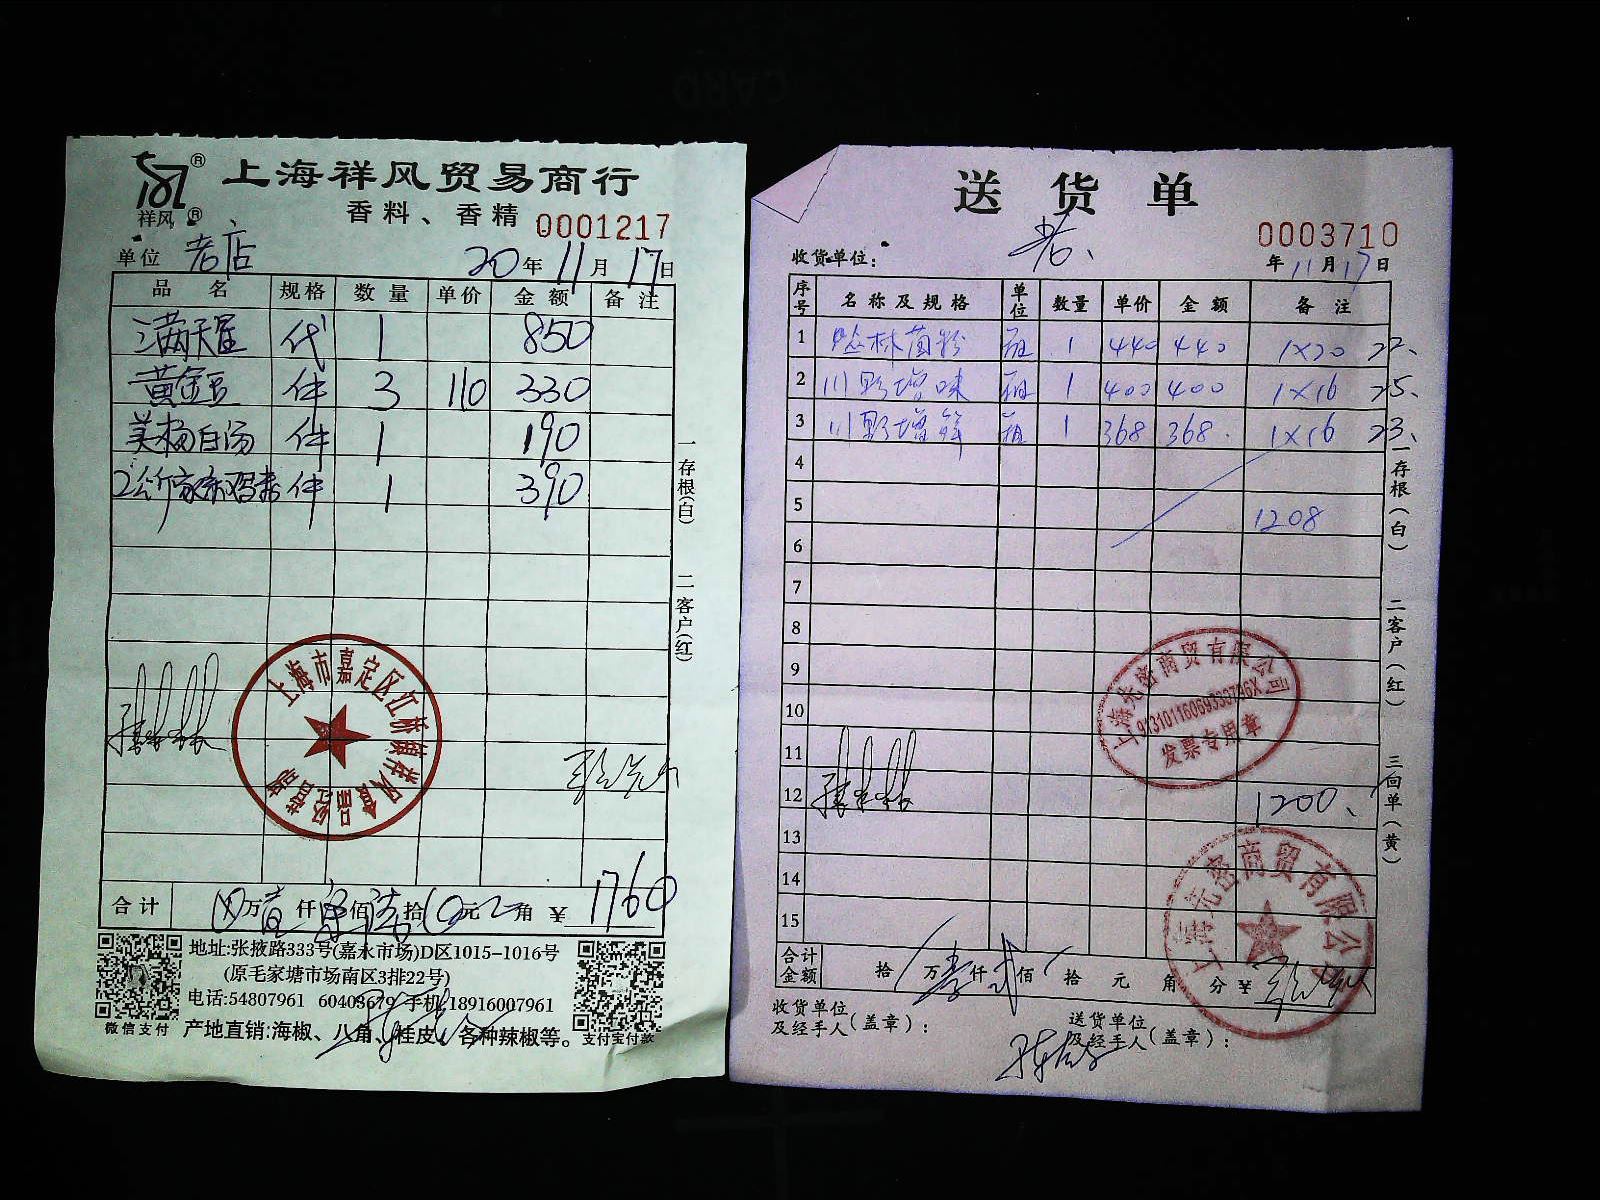 上海祥风贸易商行
祥风
香料、香精 0001217
单位 老店 20年11月17日
品名 规格 数量 单价 金额 备注
满天星 代 1 850
黄金豆 件 3 110 330
美梅白汤 件 1 190
2公斤家乐鸡精 件 1 390
一存根(白) 二客户(红)
上海市嘉定区江桥镇祥风食品经营部
合计 万 仟 佰 拾 元 角 ¥ 1760
地址:张掖路333号(嘉永市场)D区1015-1016号
(原毛家塘市场南区3排22号)
电话:54807961 60403679 手机:18916007961
微信支付 产地直销:海椒、八角、桂皮、各种辣椒等。 支付宝付款
送货单
0003710
收货单位: 老、 年11月17日
序号 名称及规格 单位 数量 单价 金额 备注
1 丛林菌粉 箱 1 440 440 1×20 22、
2 川野增味 箱 1 400 400 1×16 25、
3 川野增鲜 箱 1 368 368. 1×16 23、
4
5 1208
6
7
8
9
10
11
12 1200、
13
14
15
一存根(白) 二客户(红) 三回单(黄)
商贸有限公司
发票专用章
商贸有限公司
合计金额 拾 万壹仟贰佰 拾 元 角 分 ¥
收货单位及经手人(盖章): 送货单位及经手人(盖章):